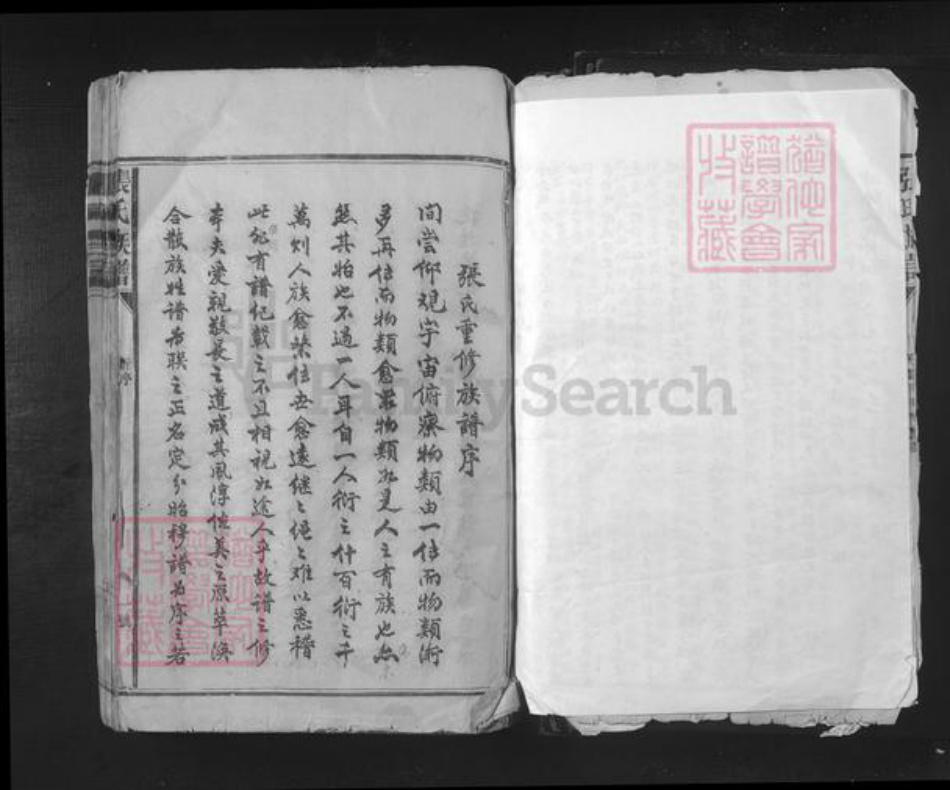 張氏重修族譜序
間嘗仰观宇宙俯察物類由一傳而物類衍
多再傳而物類愈眾物類如是人之有族也亦
然其始也不過一人耳自一人衍之什百衍之千
萬則人族愈榮住世愈遠继之绳之难以悉稽
此能有譜纪載之不且相視如途人乎故譜之修
本夫愛親敬長之道成其風淳俗美之原萃渙
合散族姓譜为联之正名定分昭穆譜为序之若
張氏族譜
譜學會
收藏
FamilySearch